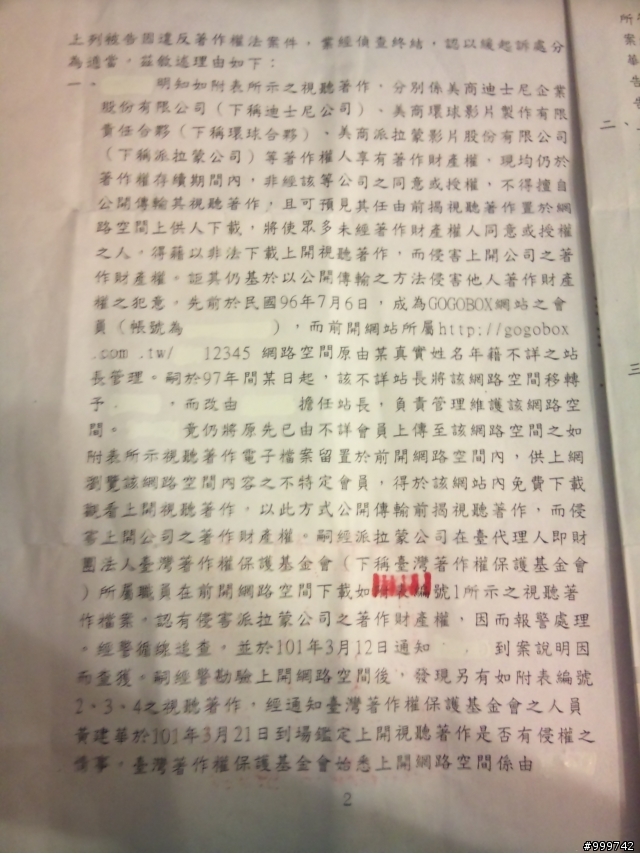 上列被告因違反著作權法案件，業經偵查終結，認以緩起訴處分
為適當，茲敘述理由如下：
一、 明知如附表所示之視聽著作，分別係美商迪士尼企業
股份有限公司（下稱迪士尼公司）、美商環球影片製作有限
責任合夥（下稱環球合夥）、美商派拉蒙影片股份有限公司
（下稱派拉蒙公司）等著作權人享有著作財產權，現均仍於
著作權存續期間內，非經該等公司之同意或授權，不得擅自
公開傳輸其視聽著作，且可預見其任由前揭視聽著作置於網
路空間上供人下載，將使眾多未經著作財產權人同意或授權
之人，得藉以非法下載上開視聽著作，而侵害上開公司之著
作財產權。詎其仍基於以公開傳輸之方法侵害他人著作財產
權之犯意，先前於民國96年7月6日，成為GOGOBOX網站之會
員（帳號為 ），而前開網站所屬http://gogobox
.com.tw/ 12345 網路空間原由某真實姓名年籍不詳之站
長管理。嗣於97年間某日起，該不詳站長將該網路空間移轉
予 ，而改由 擔任站長，負責管理維護該網路空
間。 竟仍將原先已由不詳會員上傳至該網路空間之如
附表所示視聽著作電子檔案留置於前開網路空間內，供上網
瀏覽該網路空間內容之不特定會員，得於該網站內免費下載
觀看上開視聽著作，以此方式公開傳輸前揭視聽著作，而侵
害上開公司之著作財產權。嗣經派拉蒙公司在臺代理人即財
團法人臺灣著作權保護基金會（下稱臺灣著作權保護基金會
）所屬職員在前開網路空間下載如附表編號1所示之視聽著
作檔案，認有侵害派拉蒙公司之著作財產權，因而報警處理
。經警循線追查，並於101年3月12日通知 到案說明因
而查獲。嗣經警勘驗上開網路空間後，發現另有如附表編號
2、3、4之視聽著作，經通知臺灣著作權保護基金會之人員
黃建華於101年3月21日到場鑑定上開視聽著作是否有侵權之
情事，臺灣著作權保護基金會始悉上開網路空間係由
2
所
案
華
告
告
二、
三
#999742